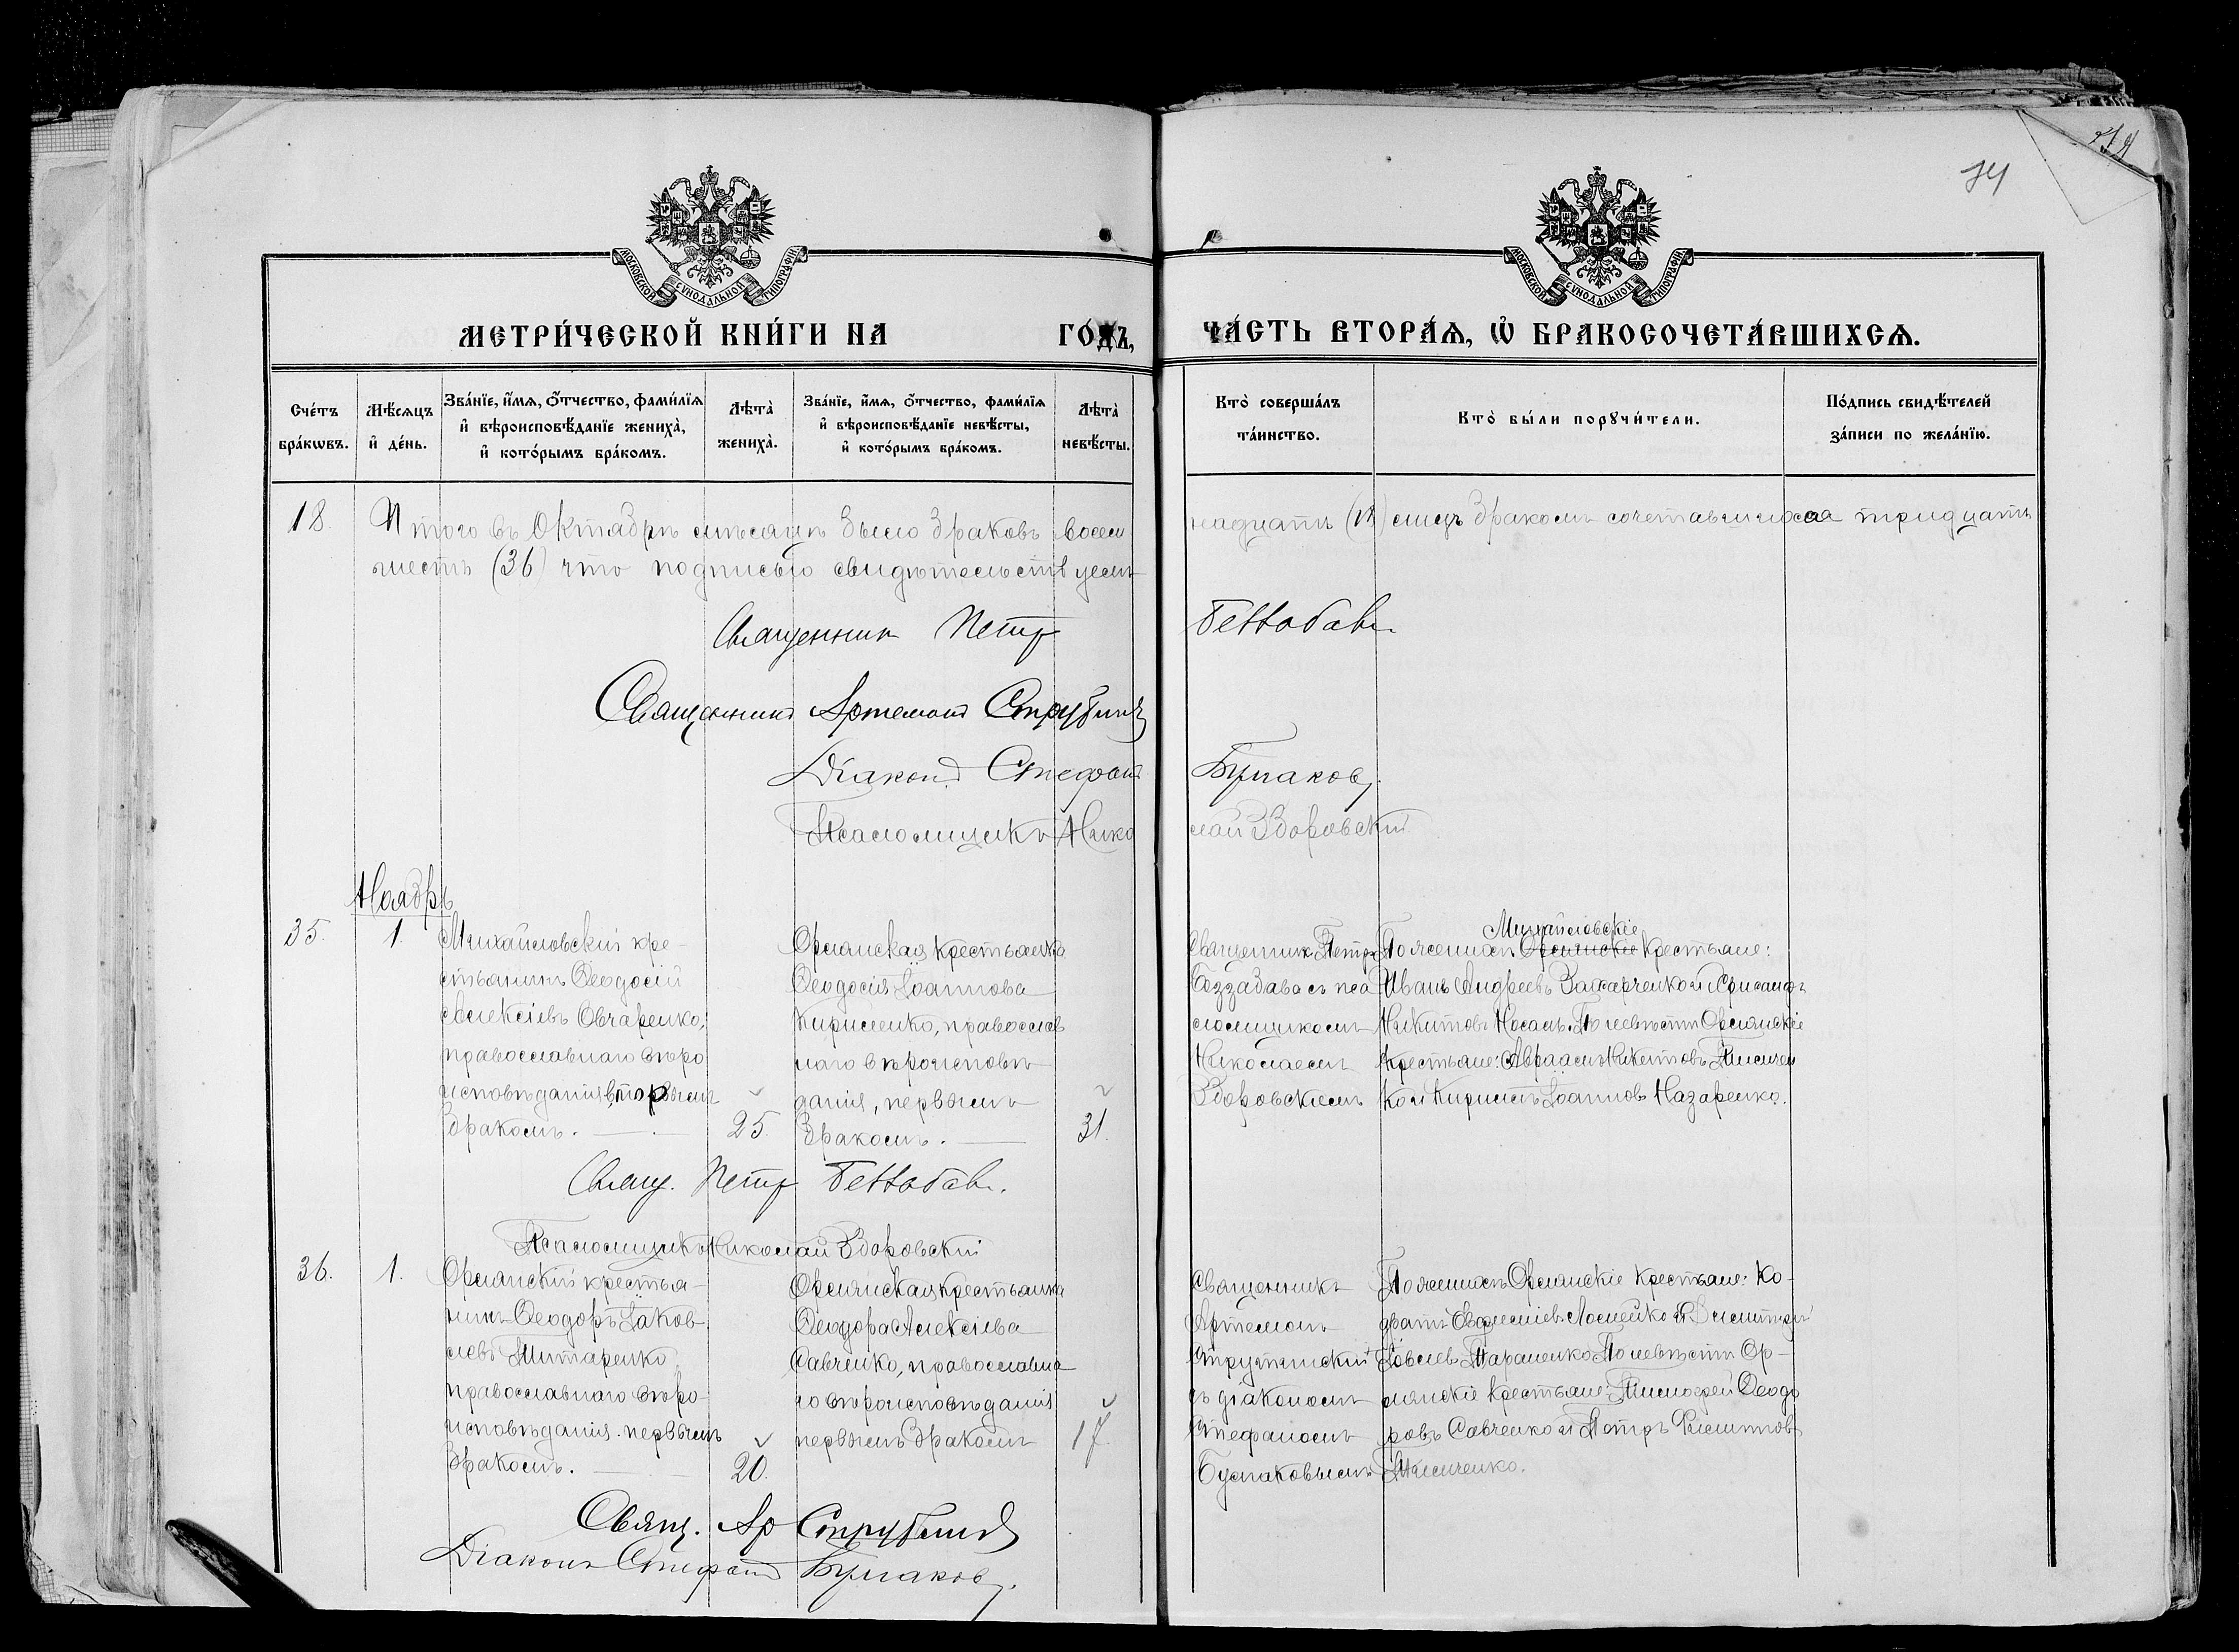 74
МОСКОВСКОЙ СУНОДАЛЬНОЙ ТИПОГРАФІИ
МОСКОВСКОЙ СУНОДАЛЬНОЙ ТИПОГРАФІИ
МЕТРИ́ЧЕСКОЙ КНИ́ГИ НА ГО́ДЪ,
ЧА́СТЬ ВТОРА́Ѧ, Ѡ҆ БРАКОСОЧЕТА́ВШИХСѦ.
Сче́тъ бра́кѡвъ.
Мѣ́сѧцъ и҆ де́нь.
Зва́нїе, и҆́мѧ, ѻ҆́тчество, фами́лїѧ и҆ вѣроисповѣ́данїе жениха̀, и҆ кото́рымъ бра́комъ.
Лѣта̀ жениха̀.
Зва́нїе, и҆́мѧ, ѻ҆́тчество, фами́лїѧ и҆ вѣроисповѣ́данїе невѣ́сты, и҆ кото́рымъ бра́комъ.
Лѣта̀ невѣ́сты.
Кто̀ соверша́лъ та́инство.
Кто̀ бы́ли порꙋчи́тели.
По́дпись свидѣ́телей за́писи по жела́нїю.
18. Итого въ Октябрѣ мѣсяцѣ было браковъ восем
надцать лицъ бракомъ сочетавшихся тридцать
шесть (36) что подписью свидѣтельствуемъ
Священник Петр
Священникъ Артемонъ
Діаконъ Стефанъ Булаковъ
Псаломщикъ Николай Зборовскій
Ноябрь
35. 1.
Михайловскій кре-
стьянинъ Ѳеодосій
Алексіевъ Овчаренко,
православнаго вѣро
исповѣданія, вторымъ
бракомъ. 25.
Орлянская крестьянка
Ѳеодосія Іоаннова
Кириленко, православ
наго вѣроисповѣ
данія, первымъ
бракомъ. 31.
Священник Петръ
съ пса
ломщикомъ
Николаемъ
Зборовскимъ
Михайловскіе
По женихѣ Орлянскіе крестьяне:
Иванъ Андреевъ Захарченко и
Никитовъ Носачъ. По невѣстѣ Орлянскіе
крестьяне: Авраамъ Никитовъ
ко и Кириллъ Іоанновъ Назаренко.
Свящ. Петр
Псаломщикъ Николай Зборовскій
36. 1.
Орлянскій крестья-
нинъ Ѳеодоръ Іаков
левъ Титаренко
православнаго вѣро-
исповѣданія. первымъ
бракомъ. 20.
Орлянская крестьянка
Ѳеодора Алексіева
Савченко, православна
го вѣроисповѣданія
первымъ бракомъ 17.
Священникъ
Артемонъ
съ діакономъ
Стефаномъ
Булаковымъ
По женихѣ Орлянскіе крестьяне: Ко-
дратъ и
По невѣстѣ Ор-
лянскіе крестьяне: Ѳеодо
ровъ Савченко и Петръ
Свящ. Ар
Діаконъ Стефанъ Булаковъ.